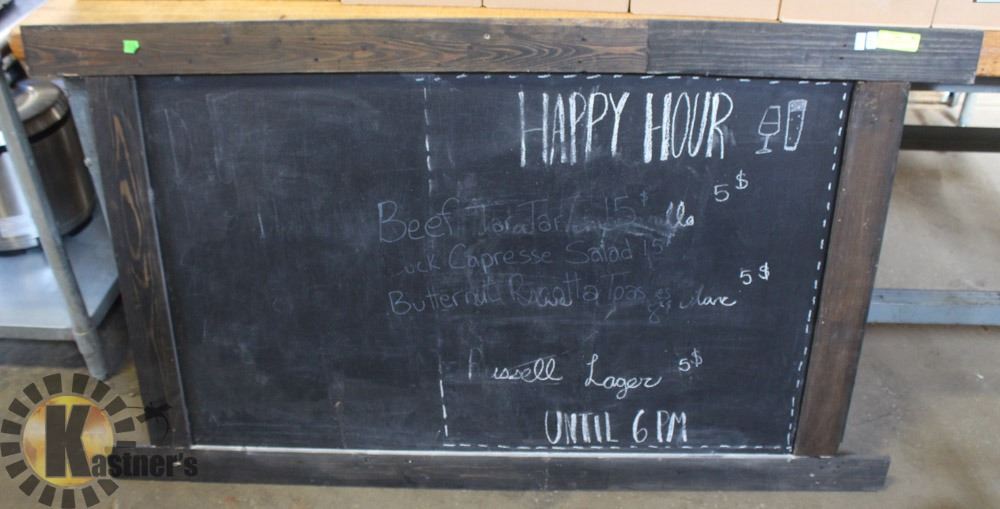 HAPPY HOUR
5$
Beef Tar Tar 15$
Capresse Salad 15
5$
Butternut Ricotta
Russell Lager 5$
UNTIL 6 PM
Kastner's